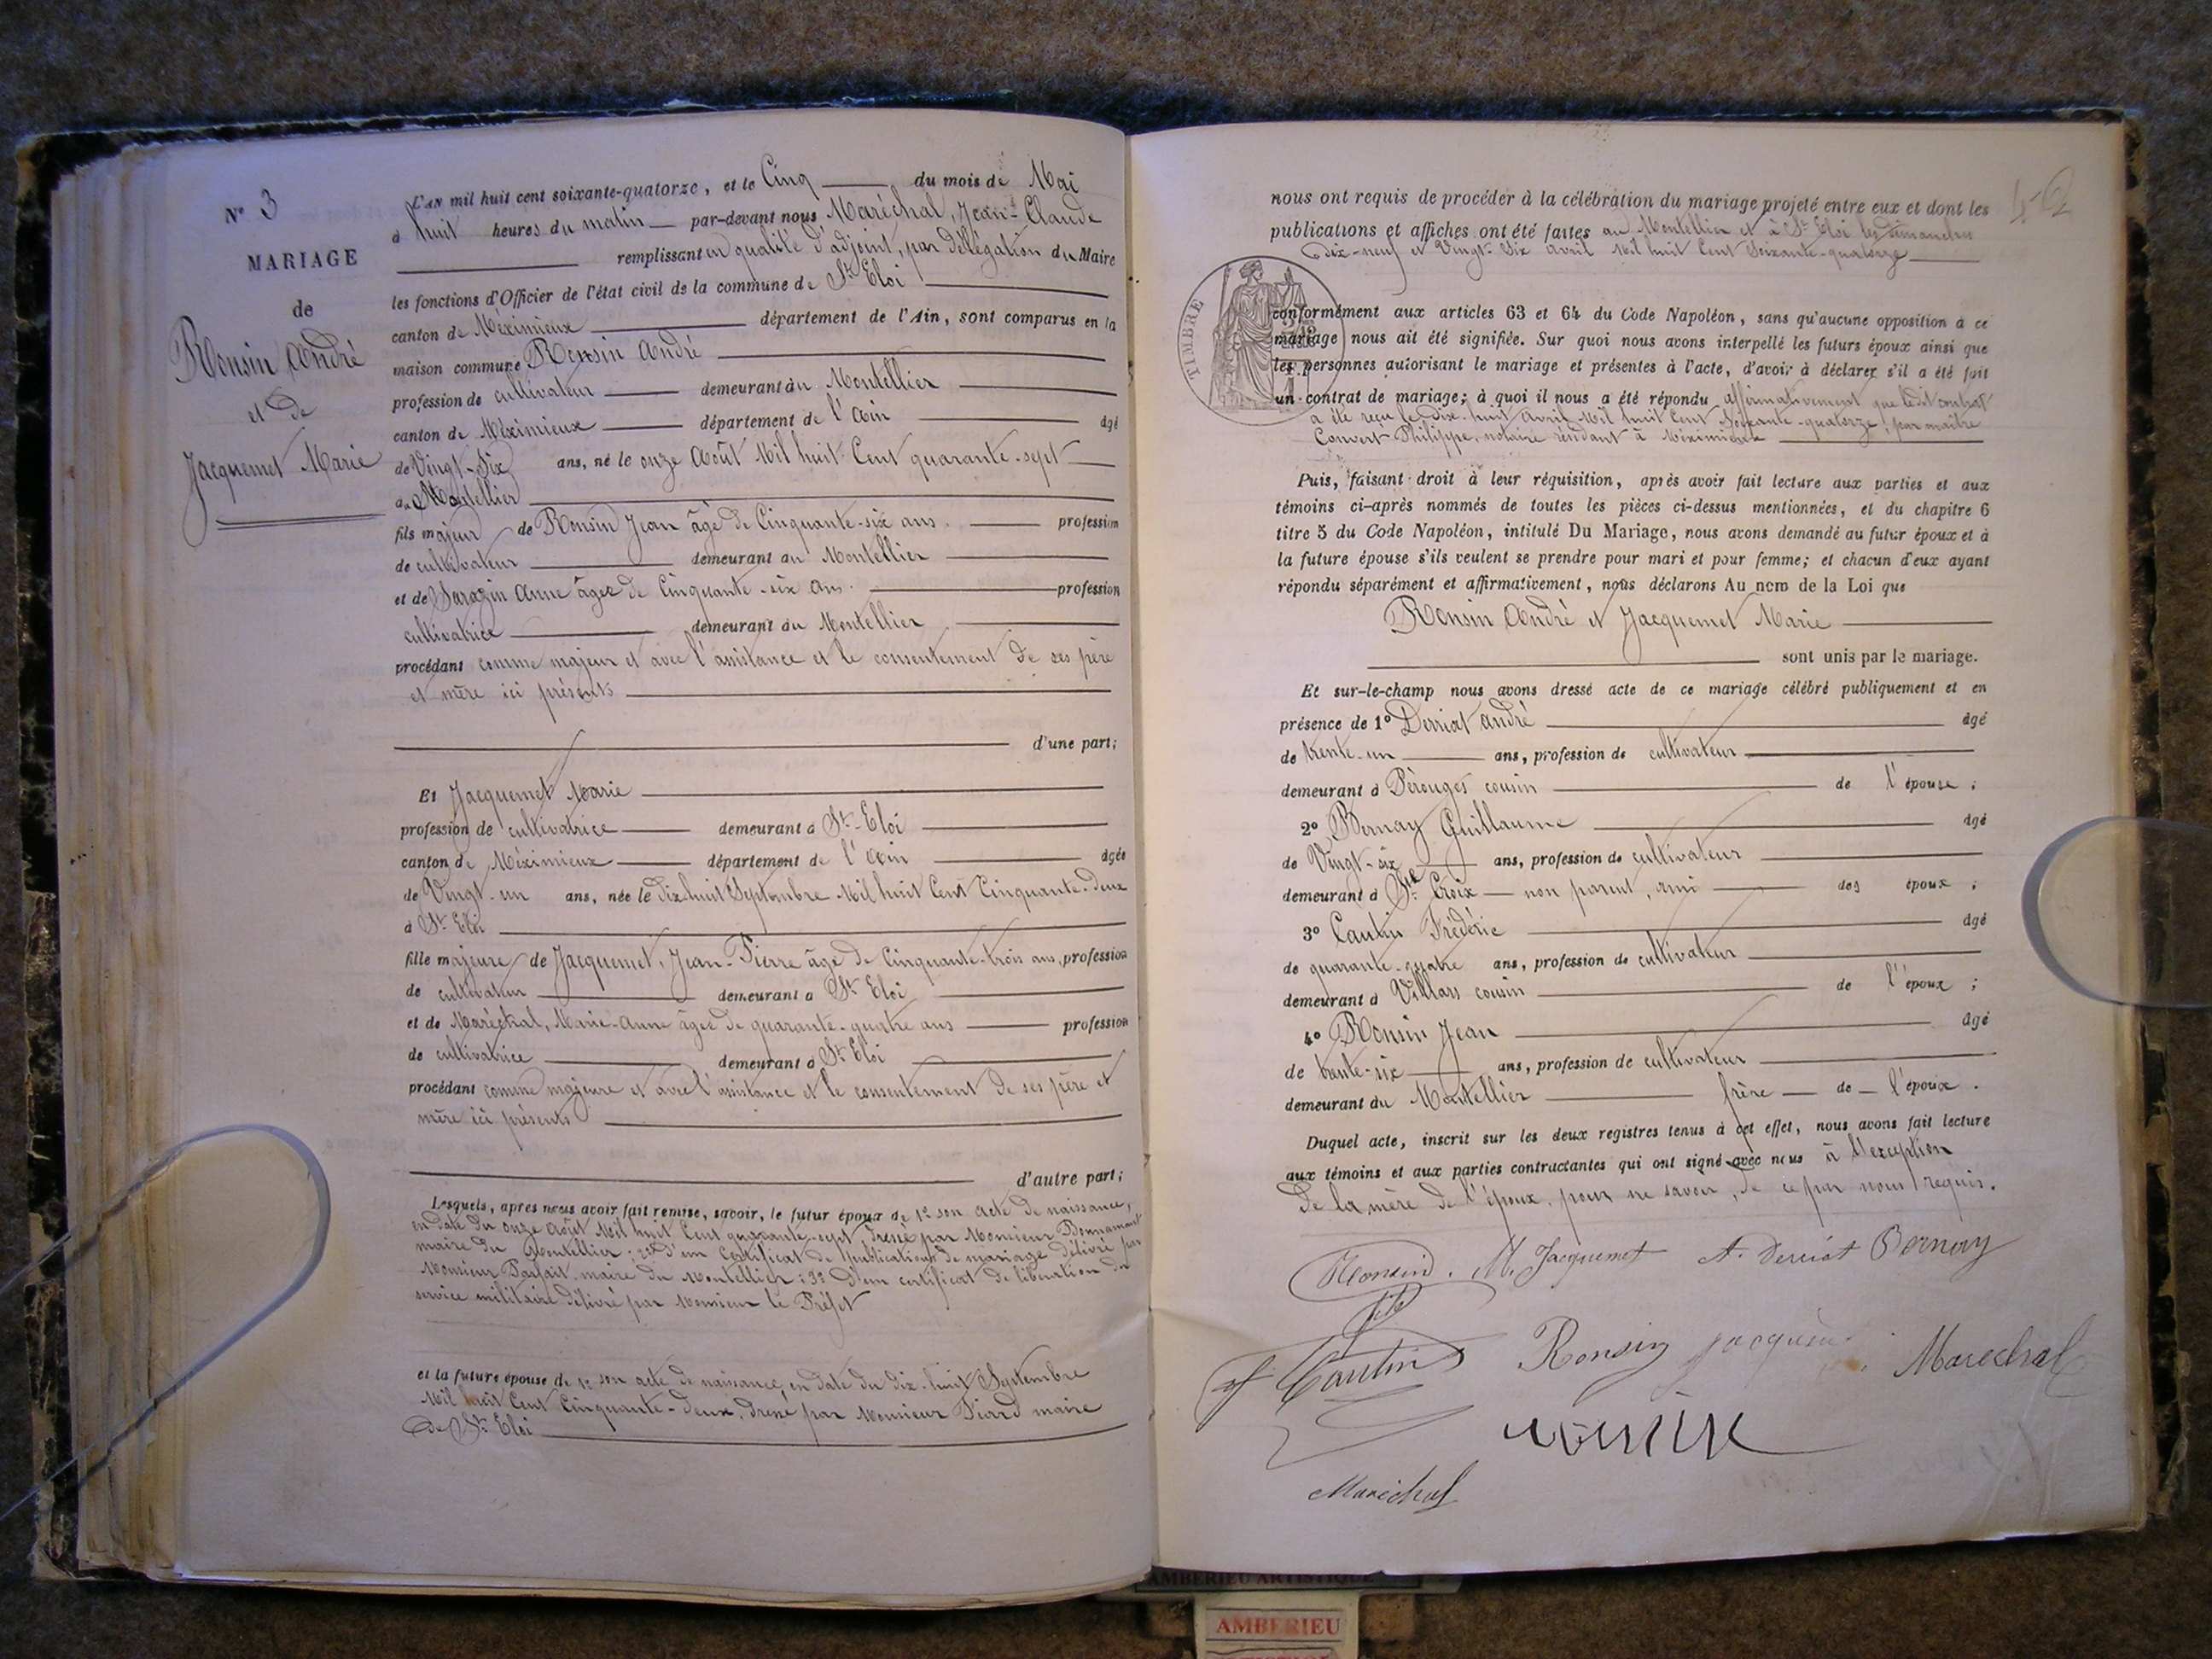 N° 3
MARIAGE
de
Ronsin André
et de
Jacquemet Marie
L'AN mil huit cent soixante-quatorze, et le Cinq du mois de Mai
à huit heures du matin par-devant nous Maréchal, Jean-Claude
remplissant en qualité d'adjoint, par délégation du Maire
les fonctions d'Officier de l'état civil de la commune de St Eloi
canton de Méximieux département de l'Ain, sont comparus en la
maison commune Ronsin André
profession de cultivateur demeurant au Montellier
canton de Méximieux département de l'Ain âgé
de Vingt-Six ans, né le onze Août Mil huit Cent quarante-sept
au Montellier
fils majeur de Ronsin Jean âgé de Cinquante-six ans profession
de cultivateur demeurant au Montellier
et de Sarazin Anne âgée de Cinquante-six ans profession
cultivatrice demeurant au Montellier
procédant comme majeur et avec l'assistance et le consentement de ses père
et mère ici présents
d'une part;
Et Jacquemet Marie
profession de cultivatrice demeurant à St-Eloi
canton de Méximieux département de l'Ain âgée
de Vingt-un ans, née le dix-huit Septembre Mil huit Cent Cinquante-deux
à St Eloi
fille majeure de Jacquemet, Jean-Pierre âgé de Cinquante-trois ans, profession
de cultivateur demeurant à St Eloi
et de Maréchal, Marie-Anne âgée de quarante-quatre ans profession
de cultivatrice demeurant à St Eloi
procédant comme majeure et avec l'assistance et le consentement de ses père et
mère ici présents
d'autre part;
Lesquels, après nous avoir fait remise, savoir, le futur époux de 1° son acte de naissance,
en date du onze Août Mil huit Cent quarante-sept dressé par Monsieur Bonnamant
maire du Montellier; 2° d'un Certificat de Publications de mariage délivré par
Monsieur Parfait maire du Montellier; 3° d'un certificat de libération du
service militaire délivré par Monsieur le Préfet
et la future épouse de 1° son acte de naissance, en date du dix-huit Septembre
Mil huit Cent Cinquante-deux, dressé par Monsieur Piard maire
de St Eloi
42
nous ont requis de procéder à la célébration du mariage projeté entre eux et dont les
publications et affiches ont été faites au Montellier et à St Eloi les dimanches
dix-neuf et Vingt-Six Avril Mil huit Cent Soixante-quatorze
TIMBRE
conformément aux articles 63 et 64 du Code Napoléon, sans qu'aucune opposition à ce
mariage nous ait été signifiée. Sur quoi nous avons interpellé les futurs époux ainsi que
les personnes autorisant le mariage et présentes à l'acte, d'avoir à déclarer s'il a été fait
un contrat de mariage; à quoi il nous a été répondu affirmativement que ledit contrat
a été reçu le dix-huit Avril Mil huit Cent Soixante-quatorze, par maître
Convert Philippe, notaire résidant à Méximieux
Puis, faisant droit à leur réquisition, après avoir fait lecture aux parties et aux
témoins ci-après nommés de toutes les pièces ci-dessus mentionnées, et du chapitre 6
titre 5 du Code Napoléon, intitulé Du Mariage, nous avons demandé au futur époux et à
la future épouse s'ils veulent se prendre pour mari et pour femme; et chacun d'eux ayant
répondu séparément et affirmativement, nous déclarons Au nom de la Loi que
Ronsin André et Jacquemet Marie
sont unis par le mariage.
Et sur-le-champ nous avons dressé acte de ce mariage célébré publiquement et en
présence de 1° Derriat André âgé
de trente-un ans, profession de cultivateur
demeurant à Pérouges cousin de l'épouse;
2° Bernay Guillaume âgé
de Vingt-six ans, profession de cultivateur
demeurant à Ste Croix non parent, ami des époux;
3° Cautin Frédéric âgé
de quarante-quatre ans, profession de cultivateur
demeurant à Villars cousin de l'époux;
4° Ronsin Jean âgé
de trente-six ans, profession de cultivateur
demeurant au Montellier frère de l'époux.
Duquel acte, inscrit sur les deux registres tenus à cet effet, nous avons fait lecture
aux témoins et aux parties contractantes qui ont signé avec nous à l'exception
de la mère de l'époux, pour ne savoir, de ce par nous requis.
Ronsin. M. Jacquemet A. Derriat Bernay
fils
f Cautin Ronsin Maréchal
Maréchal
AMBERIEU ARTISTIQUE
AMBERIEU